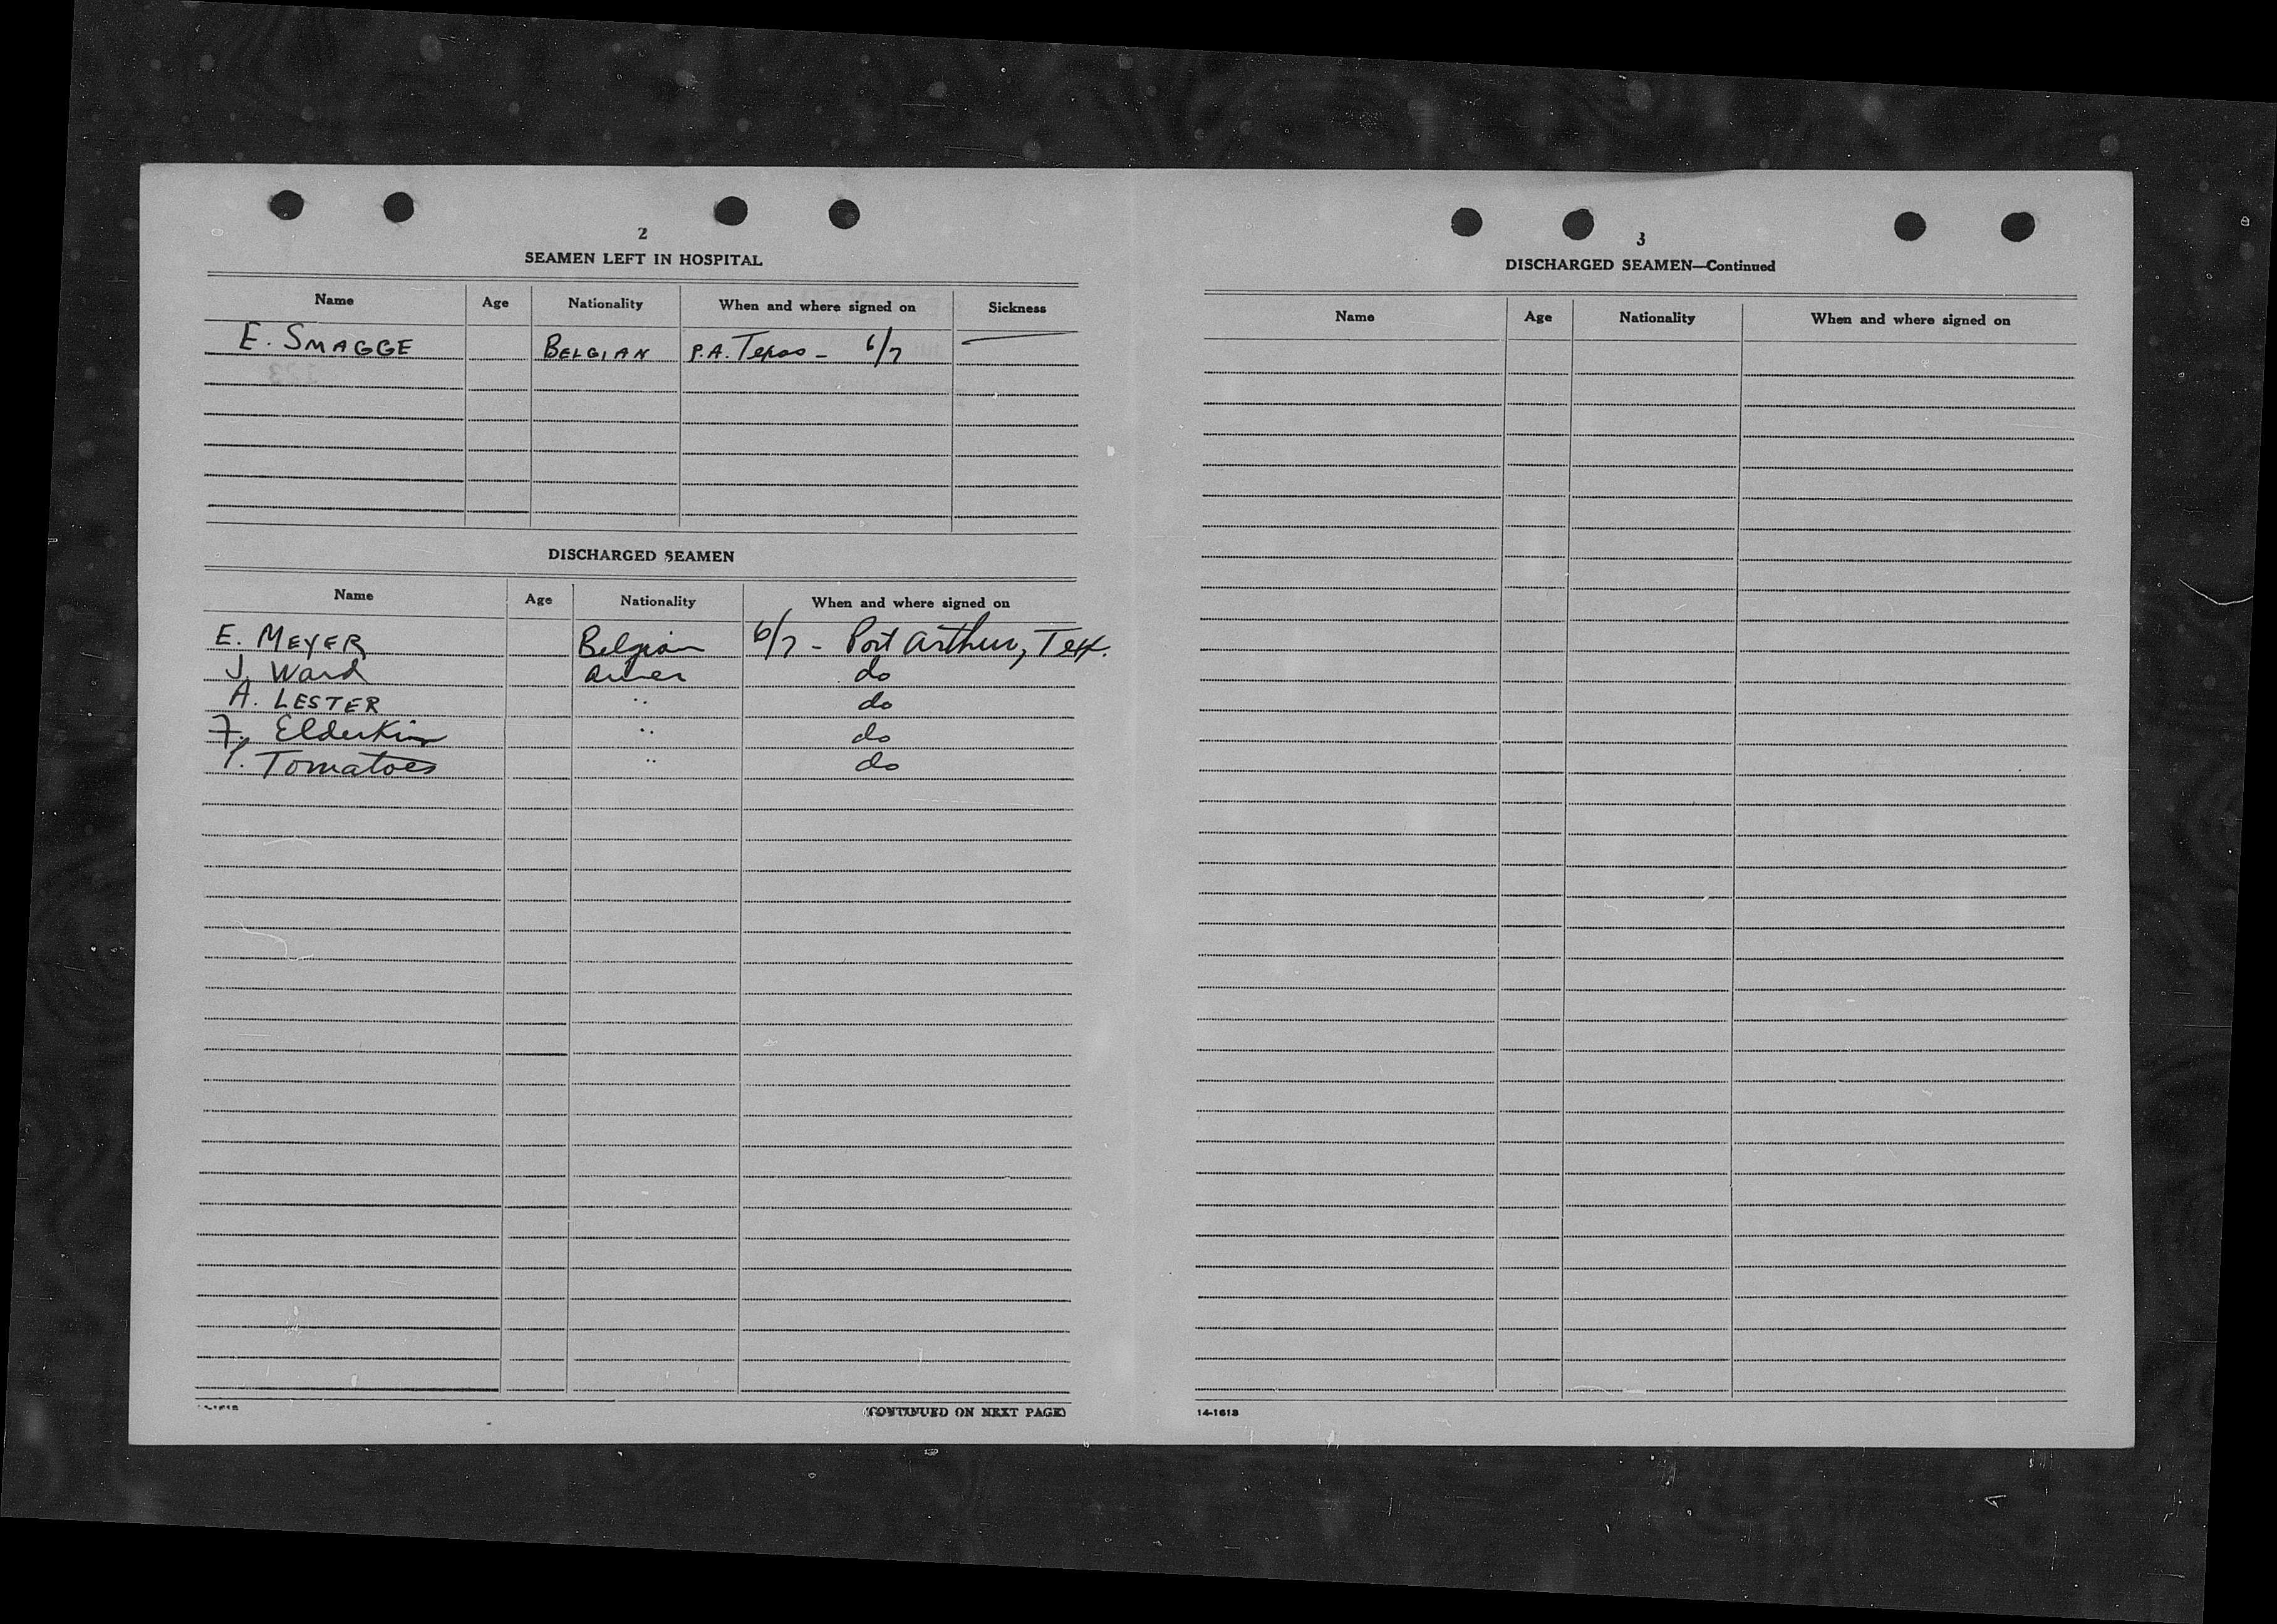 2
SEAMEN LEFT IN HOSPITAL
Name Age Nationality When and where signed on Sickness
E. SMAGGE BELGIAN P.A. Texas - 6/7
DISCHARGED SEAMEN
Name Age Nationality When and where signed on
E. MEYER Belgian 6/7 - Port Arthur, Tex.
J. Ward Amer do
A. LESTER " do
F. Elderkin " do
Tomatoes " do
(CONTINUED ON NEXT PAGE)
3
DISCHARGED SEAMEN—Continued
Name Age Nationality When and where signed on
14-1618